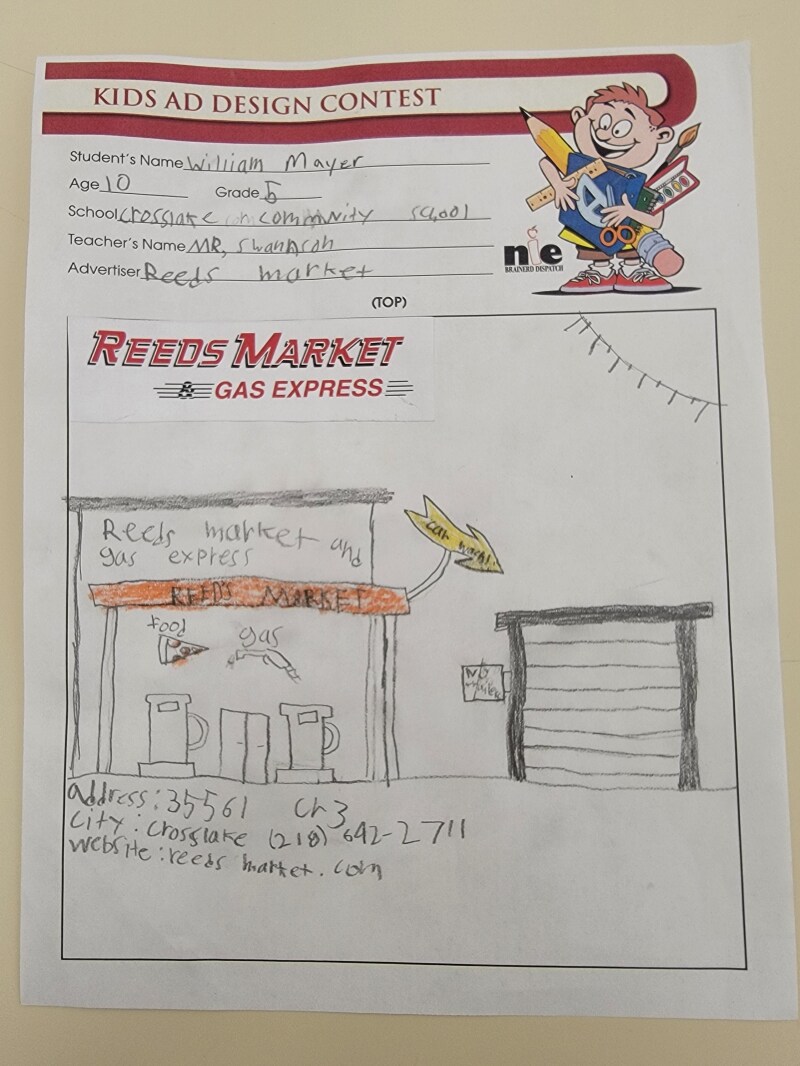 KIDS AD DESIGN CONTEST
Student's Name William Mayer
Age 10 Grade 5
School Crosslake community school
Teacher's Name MR, Swanson
Advertiser Reeds market
nie
BRAINERD DISPATCH
(TOP)
REEDS MARKET
& GAS EXPRESS
Reeds market and
gas express
car wash!
REED'S MARKET
food
gas
address: 35561 Cr 3
City: Crosslake (218) 692-2711
website: reeds market. com